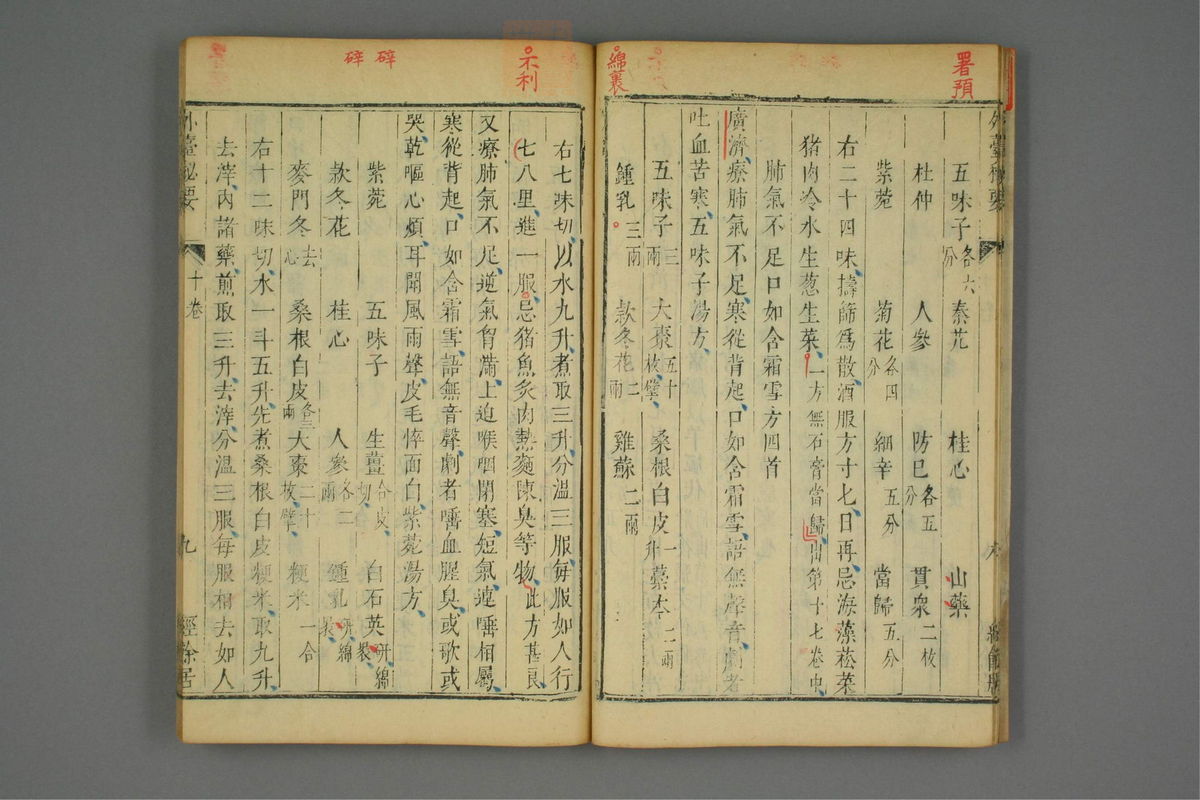 署預
綿裏
五味子各六分 秦艽 桂心 山藥
杜仲 人參 防巳各五分 貫衆二枚
紫菀 菊花各四分 細辛五分 當歸五分
右二十四味擣篩爲散酒服方寸匕日再忌海藻菘菜
猪肉冷水生葱生菜一方無石膏當歸出第十七卷中
肺氣不足口如含霜雪方四首
廣濟療肺氣不足寒從背起口如含霜雪語無聲音劇者
吐血苦寒五味子湯方
五味子三兩 大棗五十枚擘 桑根白皮一升 藁本二兩
鍾乳三兩 款冬花二兩 雞蘇二兩
不利
碎 碎
右七味切以水九升煮取三升分溫三服每服如人行
七八里進一服忌猪魚炙肉熱麵陳臭等物此方甚良
又療肺氣不足逆氣胷滿上迫喉咽閉塞短氣連唾相屬
寒從背起口如含霜雪語無音聲劇者唾血腥臭或歌或
哭乾嘔心煩耳聞風雨聲皮毛悴面白紫菀湯方
紫菀 五味子 生薑合皮切 白石英研綿裏
款冬花 桂心 人參各二兩 鍾乳研綿裏
麥門冬去心 桑根白皮各三兩 大棗二十枚擘 粳米一合
右十二味切水一斗五升先煮桑根白皮粳米取九升
去滓内諸藥煎取三升去滓分溫三服每服相去如人
外臺秘要 十卷 九 經餘居